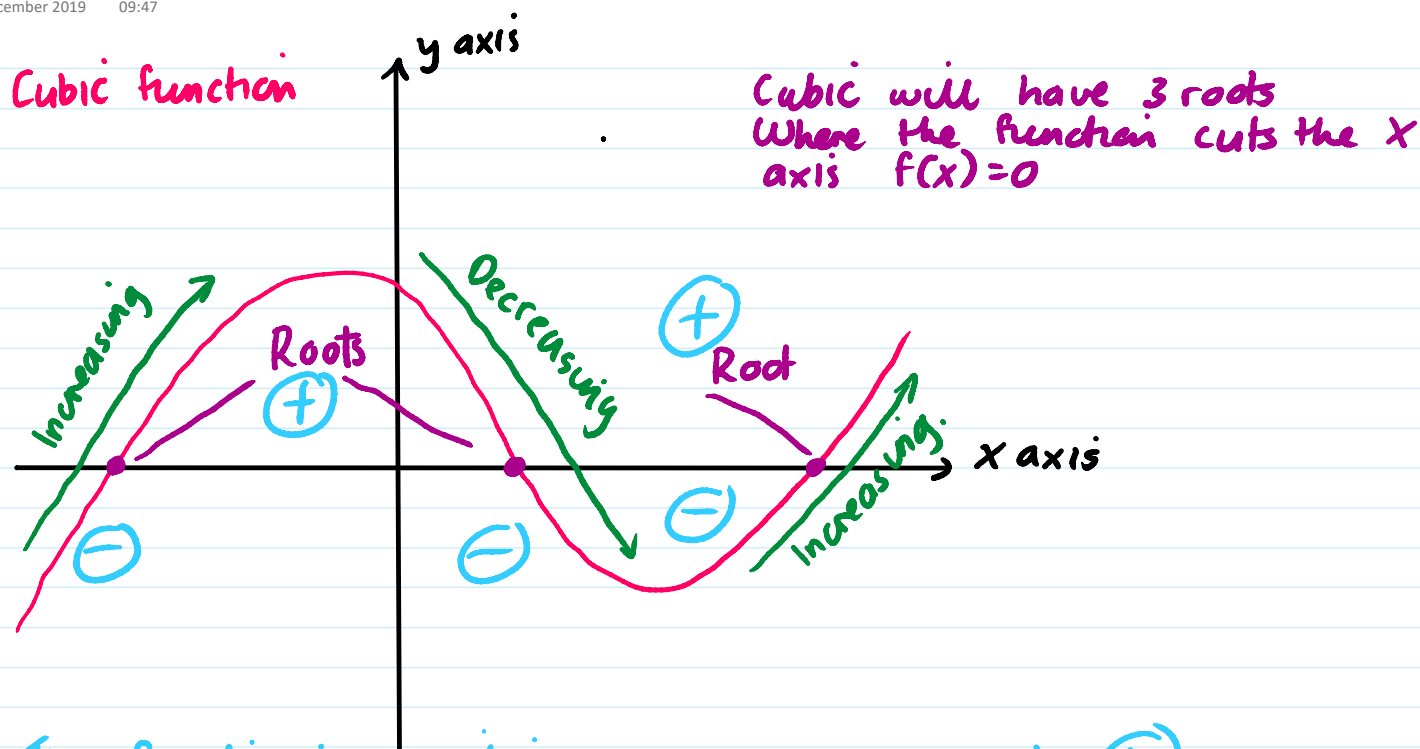 cember 2019 09:47
y axis
Cubic function
Cubic will have 3 roots
Where the function cuts the X
axis f(x)=0
Increasing
Decreasing
+
Roots
+
Root
Increasing.
X axis
−
−
−